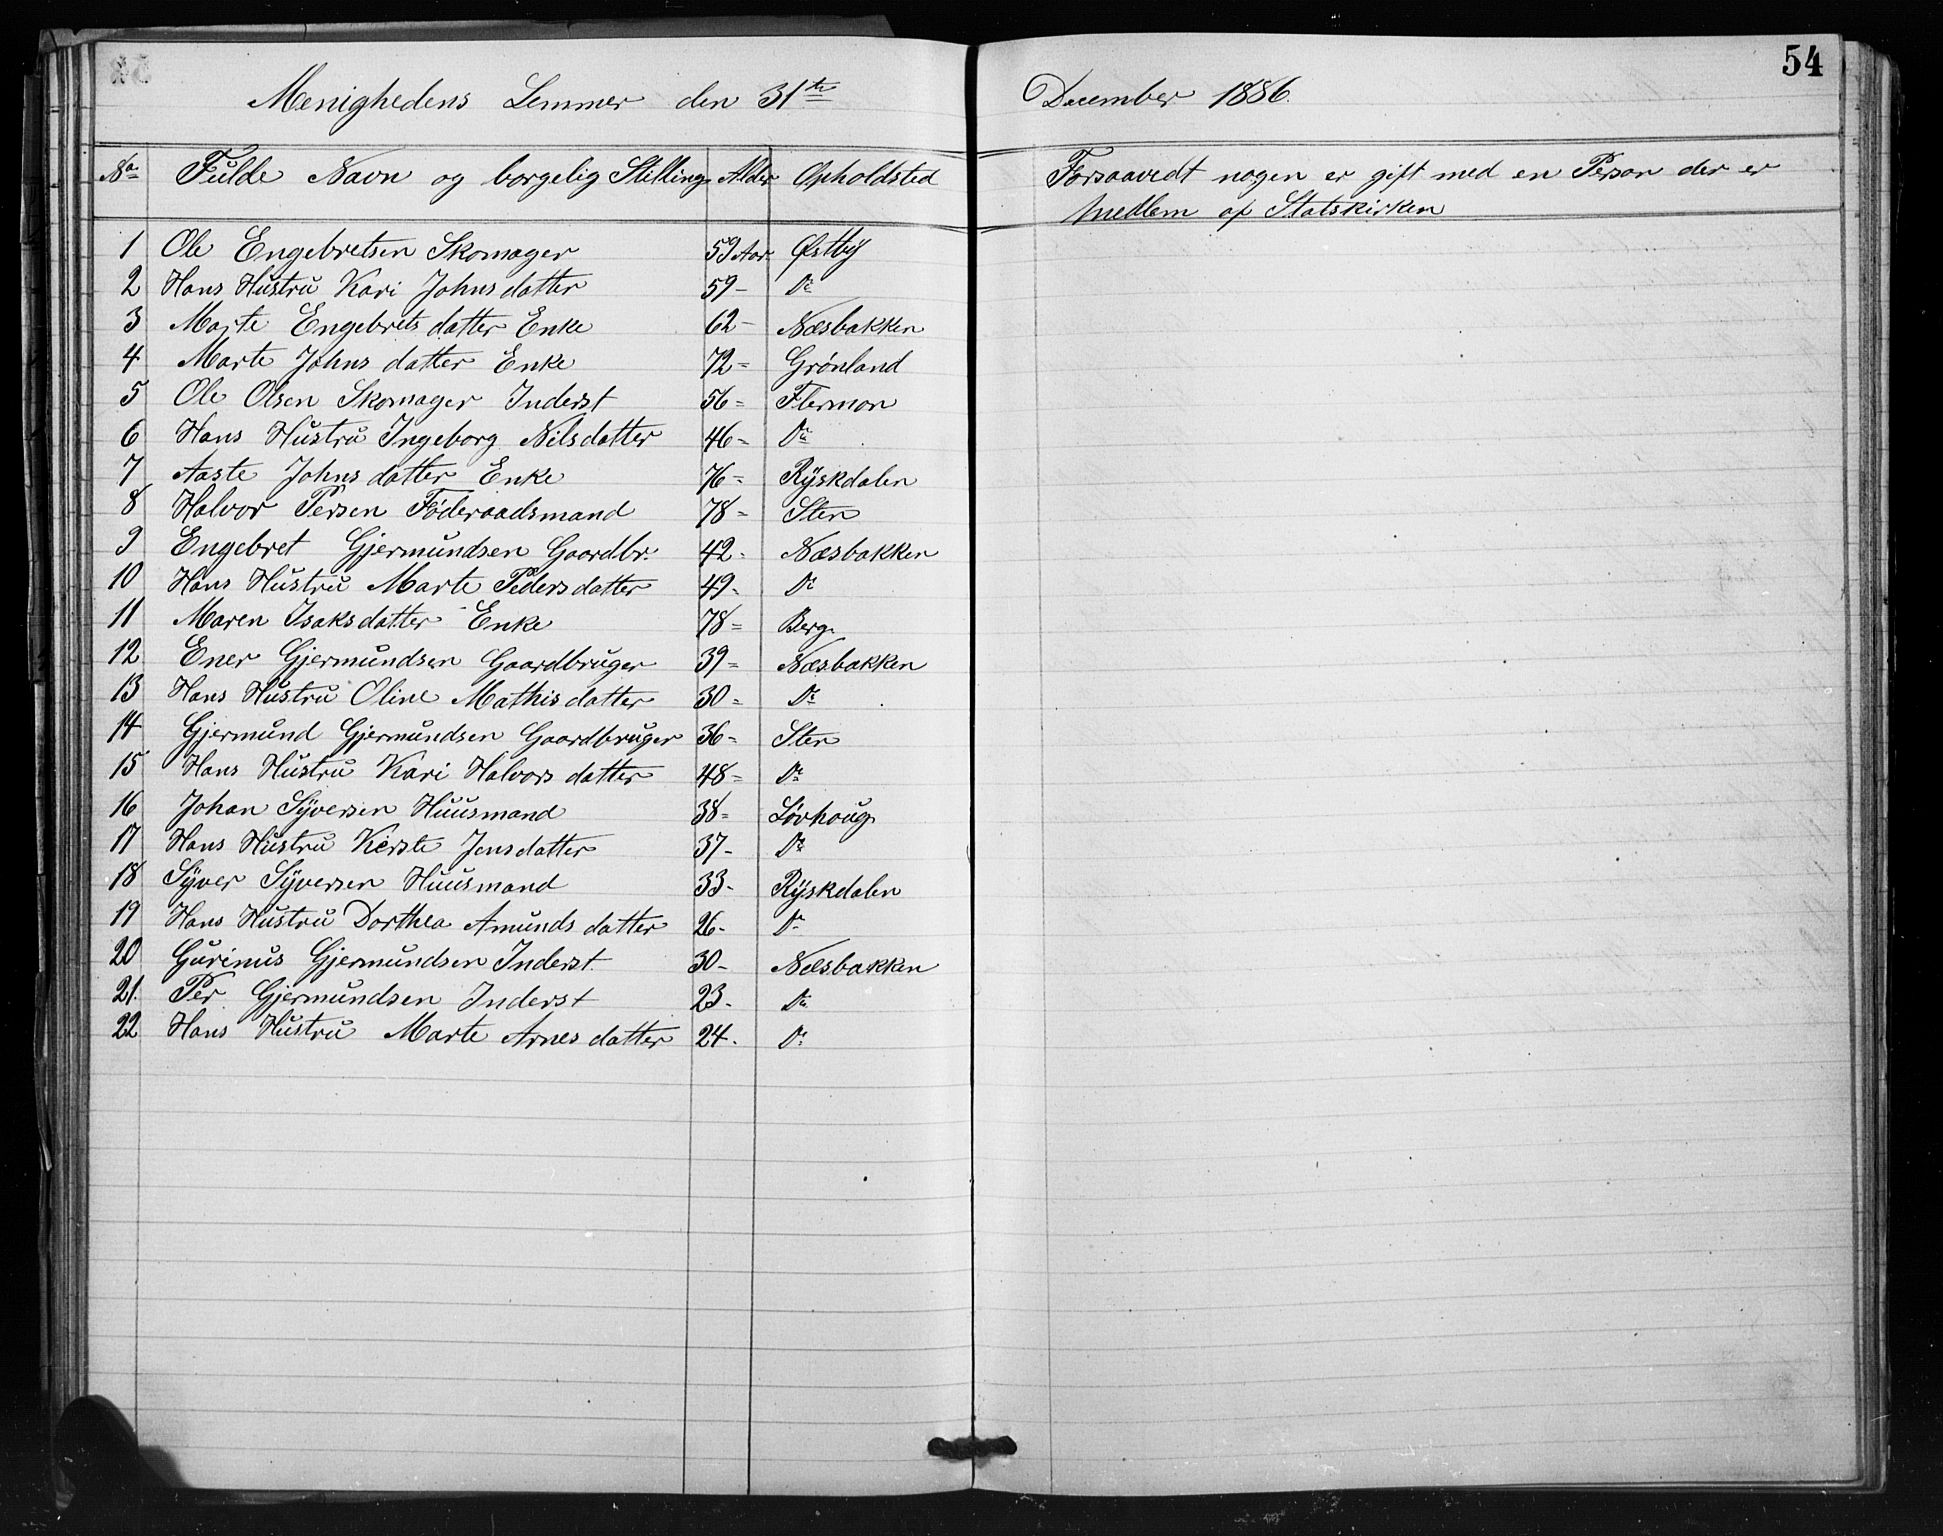 54
Menighedens Lemmer den 31te December 1886.
No Fulde Navn og borgelig Stilling Alder Opholdsted Forsaavedt nogen er gift med en Person der er
Medlem af Statskirken
1 Ole Engebretsen Skomager 59 Aar Østby
2 Hans Hustru Kari Johnsdatter 59 - Do
3 Marte Engebretsdatter Enke 62 - Næsbakken
4 Marte Johnsdatter Enke 72 = Grønland
5 Ole Olsen Skomager Inderst 56 = Flermon
6 Hans Hustru Ingeborg Nilsdatter 46 = Do
7 Aaste Johnsdatter Enke 76 = Ryskdalen
8 Halvor Persen Føderaadsmand 78 = Sten
9 Engebret Gjermundsen Gaardbr. 42 - Næsbakken
10 Hans Hustru Marte Pedersdatter 49 - Do
11 Maren Isaksdatter Enke 78 = Berg
12 Ener Gjermundsen Gaardbruger 39 = Næsbakken
13 Hans Hustru Oline Mathisdatter 30 = Do
14 Gjermund Gjermundsen Gaardbruger 36 = Sten
15 Hans Hustru Kari Halvorsdatter 48 = Do
16 Johan Syversen Huusmand 38 = Løvhoug
17 Hans Hustru Kerste Jensdatter 37 - Do
18 Syver Syversen Huusmand 33 - Ryskdalen
19 Hans Hustru Dorthea Amundsdatter 26 - Do
20 Gurinus Gjermundsen Inderst 30 - Næsbakken
21. Per Gjermundsen Inderst 23 - Do
22 Hans Hustru Marte Arnesdatter 24 - Do